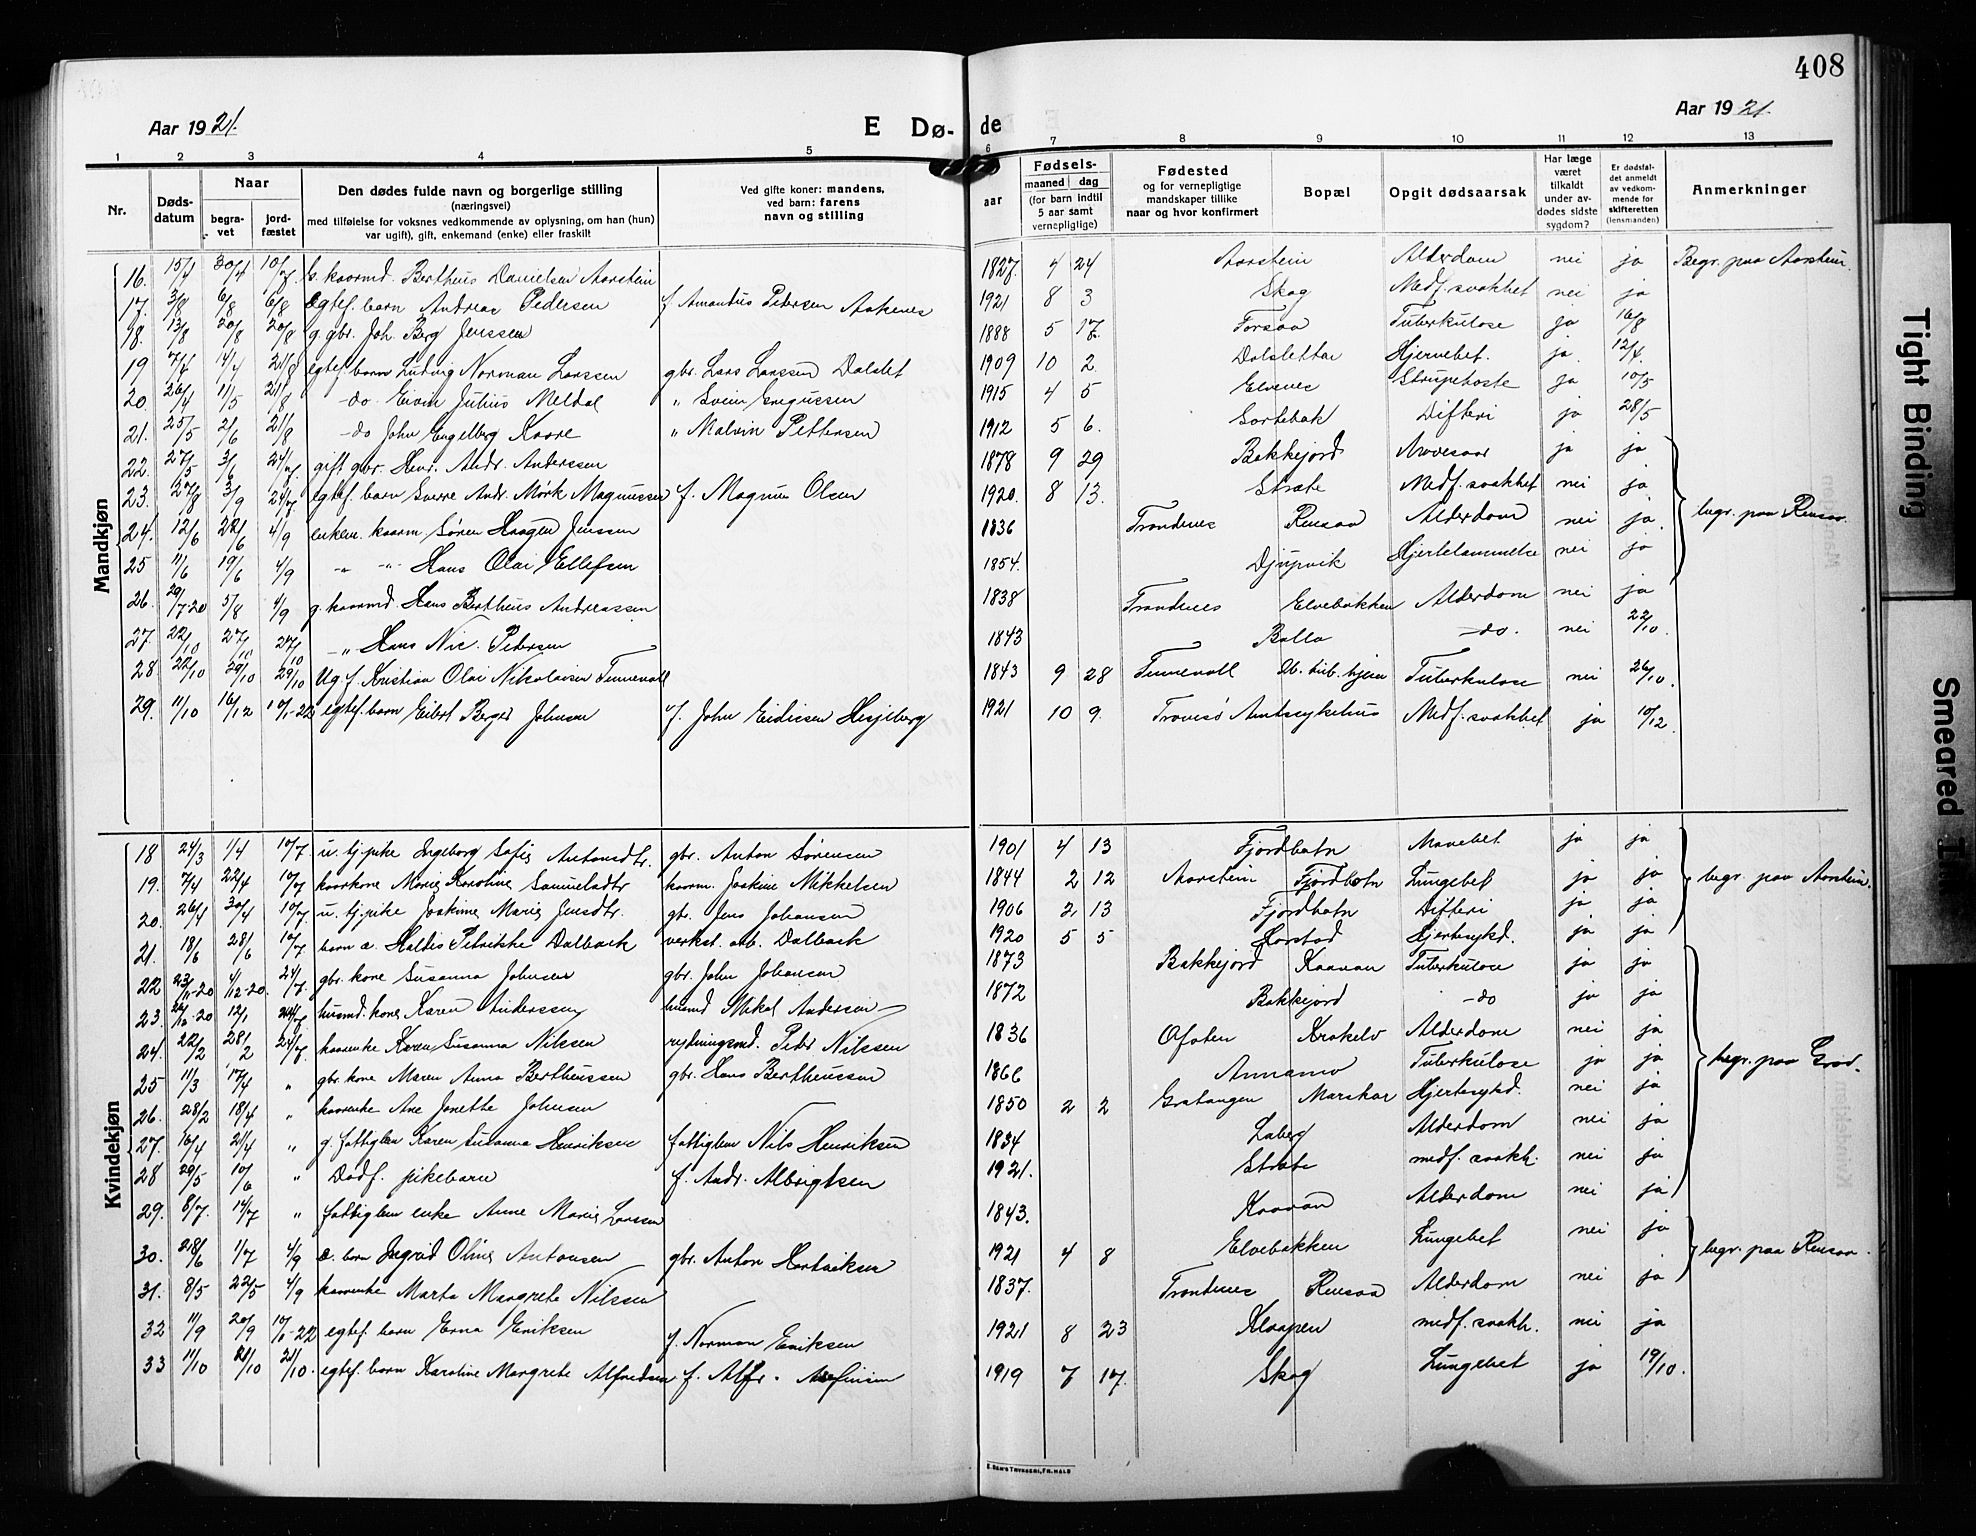 408
Aar 1921. E Dø- de Aar 1921
1 2 3 4 5 6 7 8 9 10 11 12 13
Nr. Døds-datum Naar begra-vet jord-fæstet Den dødes fulde navn og borgerlige stilling (næringsvei) med tilføielse for voksnes vedkommende av oplysning, om han (hun) var ugift), gift, enkemand (enke) eller fraskilt Ved gifte koner: mandens, ved barn: farens navn og stilling aar Fødsels- maaned dag (for barn indtil 5 aar samt vernepligtige) Fødested og for vernepligtige mandskaper tillike naar og hvor konfirmert Bopæl Opgit dødsaarsak Har læge været tilkaldt under av-dødes sidste sygdom? Er dødsfal-det anmeldt av vedkom-mende for skifteretten (lensmanden) Anmerkninger
Mandkjøn
16. 15/4 30/4 10/7 kaarmd. Berthus Danielsen Aarstein 1827. 4 24 Aarstein Alderdom nei ja Begr. paa Aarstein.
17. 3/8 6/8 6/8 egtef. barn Andreas Pedersen f. Amandus Petersen Aakenes 1921 8 3 Skog Medf. svakhet nei ja
18. 13/8 20/8 20/8 g. gbr. Joh. Berg Jenssen 1888 5 17. Forsaa Tuberkulose ja 16/8
19 7/4 14/4 21/8 egtef. barn Ludvig Norman Larssen gbr. Lars Larssen Dalslet 1909 10 2. Dalsletta Hjernebet. ja 12/4.
20. 26/4 11/5 21/8 -do Eivin Julius Meldal " Svein 1915 4 5 Elvenes Strupehoste ja 10/5
21. 25/5 2/6 21/8 -do John Engelberg Kaare " Malvin Pettersen 1912 5 6. Sortebak Difteri ja 28/5
22. 27/5 3/6 24/7. gift gbr. Henr. Andr. Anderssen 1878 9 29 Bakkejord ja ja
23. 27/8 3/9 24/7 egtef. barn Sverre Andr. Mørk Magnussen f. Magnus Olsen 1920. 8 13. Strate Medf. svakhet nei ja
24. 12/6 22/6 4/9 enkem. kaarm Søren Haagen Jenssen 1836 Trondenes Rensaa Alderdom nei ja. begr. paa Rensaa.
25 11/6 19/6 4/9 -"- -"- Hans Olai Ellefsen 1854. Djupvik Hjertelammelse nei ja
26. 29/7-20 5/8 4/9 g. kaarmd. Hans Berthus Andreassen 1838 Trondenes Elvebakken Alderdom nei ja
27. 22/10 27/10 27/10 -" Hans Nic. Petersen 1843 Balla -do. nei 22/10.
28 22/10 29/10 29/10 Ug. f. Kristian Olai Nikolaisen Tennevoll 1843 9 28 Tennevoll Tuberkulose nei 26/10.
29. 11/10 16/12 10/1-22 egtef. barn Eilert Berger Johnsen f. John Eidissen Hesjeberg 1921 10 9. Tromsø Amtssykehus Medf. svakhet ja 10/12.
Kvindekjøn
18 24/3 1/4 10/7. u. tj.pike Ingeborg Sofie Antonsdtr. gbr. Anton Sørensen 1901 4 13 Fjordbotn Mavebet ja ja
19. 7/4 22/4 10/7 kaarkone Marie Karoline Samuelsdtr kaarm. Joakim Mikkelsen 1844 2 12 Aarstein Fjordbotn Lungebet ja ja begr. paa Aarstein.
20. 26/4 30/4 10/7 u. tj.pike Joakime Marie Jensdtr. gbr. Jens Johansen 1906 2, 13 Fjordbotn Difteri ja ja
21. 18/6 28/6 10/7 barn æ. Haldis Petrikke Dalback verkst. arb. Dalback 1920 5 5 Harstad Hjertesykd. ja ja
22 23/11-20 4/12-20. 24/7. gbr. kone Susanna Johnsen gbr. John Johansen 1873 Bakkejord Kaavan Tuberkulose ja ja
23. 26/10-20 12/1 24/7 husmd. kone Karen Anderssen husmd Mikal Andersen 1872 Bakkejord -do ja ja
24. 22/2 28/2 24/7 kaarenke Karen Susanna Nilssen rydningsmd. Peder Nilssen 1836 Ofoten Krakelv Alderdom nei ja
25 11/3 17/4 " gbr. kone Maren Anna Bertheussen gbr. Hans Bertheussen 1866 Annamo Tuberkulose ja ja begr. paa Grad.
26. 28/2 18/4 " kaarenke Ane Janette Johnsen 1850 2 2 Gratangen Marskar Hjertesykd. nei ja
27. 16/4 21/4 " g. fattiglem Karen Susanna Henriksen fattiglem Nils Henriksen 1834 Laberg Alderdom nei ja
28 29/5 10/6 " Dødf. pikebarn f. Andr. Albrigtsen 1921. Strate medf. svakh. nei ja
29. 8/7. 14/7 " fattiglem enke Anne Marie Larssen 1843. Kaavan Alderdom nei ja
30. 28/6 1/7 4/9 æ. barn Ingrid Oline Antonsen gbr. Anton Hartviksen 1921 4 8 Elvebakken Lungebet nei ja begr. paa Rensaa.
31. 8/5 22/5 4/9 kaarenke Marta Margrete Nilssen 1837. Trondenes Rensaa Alderdom nei ja
32 11/9 20/9 10/1-22 egtef. barn Erna Eriksen f. Norman Eriksen 1921 8 23 Klaapen medf. svakh. nei ja
33 11/10 21/10 21/10. egtef. barn Karoline Margrete Alfredsen f. Alfr. 1919 7 17. Skog Lungebet ja 19/10.
E. SEM'S TRYKKERI, FR.HALD
Tight Binding
Smeared I